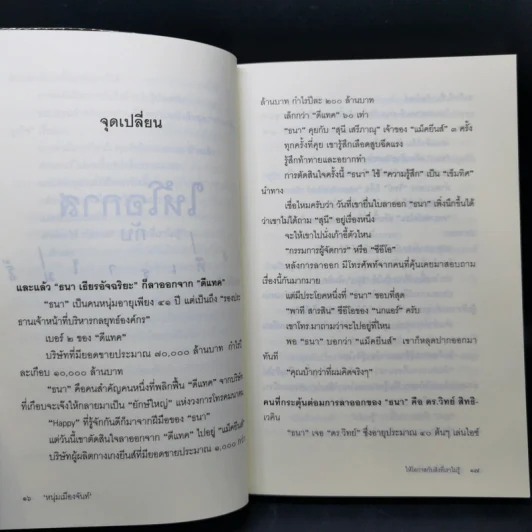 จุดเปลี่ยน
และแล้ว "ธนา เธียรอัจฉริยะ" ก็ลาออกจาก "ดีแทค"
"ธนา" เป็นคนหนุ่มอายุเพียง ๔๑ ปี แต่เป็นถึง "รองประ
ธานเจ้าหน้าที่บริหารกลยุทธ์องค์กร"
เบอร์ ๒ ของ "ดีแทค"
บริษัทที่มียอดขายประมาณ ๗๐,๐๐๐ ล้านบาท กำไรปี
ละเกือบ ๑๐,๐๐๐ ล้านบาท
"ธนา" คือคนสำคัญคนหนึ่งที่พลิกฟื้น "ดีแทค" จากบริษัท
ที่เกือบจะเจ๊งให้กลายมาเป็น "ยักษ์ใหญ่" แห่งวงการโทรคมนาคม
"Happy" ที่รู้จักกันดีก็มาจากฝีมือของ "ธนา"
แต่วันนี้เขาตัดสินใจลาออกจาก "ดีแทค" ไปอยู่ "แม็คยีนส์"
บริษัทผู้ผลิตกางเกงยีนส์ที่มียอดขายประมาณ ๑,๐๐๐ กว่า
๑๖ "หนุ่มเมืองจันท์"
ล้านบาท กำไรปีละ ๒๐๐ ล้านบาท
เล็กกว่า "ดีแทค" ๖๐ เท่า
"ธนา" คุยกับ "สุณี เสรีภาณุ" เจ้าของ "แม็คยีนส์" ๓ ครั้ง
ทุกครั้งที่คุย เขารู้สึกเลือดสูบฉีดแรง
รู้สึกท้าทายและอยากทำ
การตัดสินใจครั้งนี้ "ธนา" ใช้ "ความรู้สึก" เป็น "เข็มทิศ"
นำทาง
เชื่อไหมครับว่า วันที่เขายื่นใบลาออก "ธนา" เพิ่งนึกขึ้นได้
ว่าเขาไม่ได้ถาม "สุณี" อยู่เรื่องหนึ่ง
จะให้เขาไปนั่งเก้าอี้ตัวไหน
"กรรมการผู้จัดการ" หรือ "ซีอีโอ"
หลังการลาออก มีโทรศัพท์จากคนที่คุ้นเคยมาสอบถาม
เรื่องนี้กันมากมาย
แต่มีประโยคหนึ่งที่ "ธนา" ชอบที่สุด
"พาที สารสิน" ซีอีโอของ "นกแอร์" ครับ
เขาโทร.มาถามว่าจะไปอยู่ที่ไหน
พอ "ธนา" บอกว่า "แม็คยีนส์" เขาก็หลุดปากออกมา
ทันที
"คุณบ้ากว่าที่ผมคิดจริงๆ"
คนที่กระตุ้นต่อมการลาออกของ "ธนา" คือ ดร.วิทย์ สิทธิ-
เวคิน
"ธนา" เจอ "ดร.วิทย์" ซึ่งอายุประมาณ ๔๐ ต้นๆ เล่นไอซ์
ให้โอกาสกับสิ่งที่เราไม่รู้ ๑๗